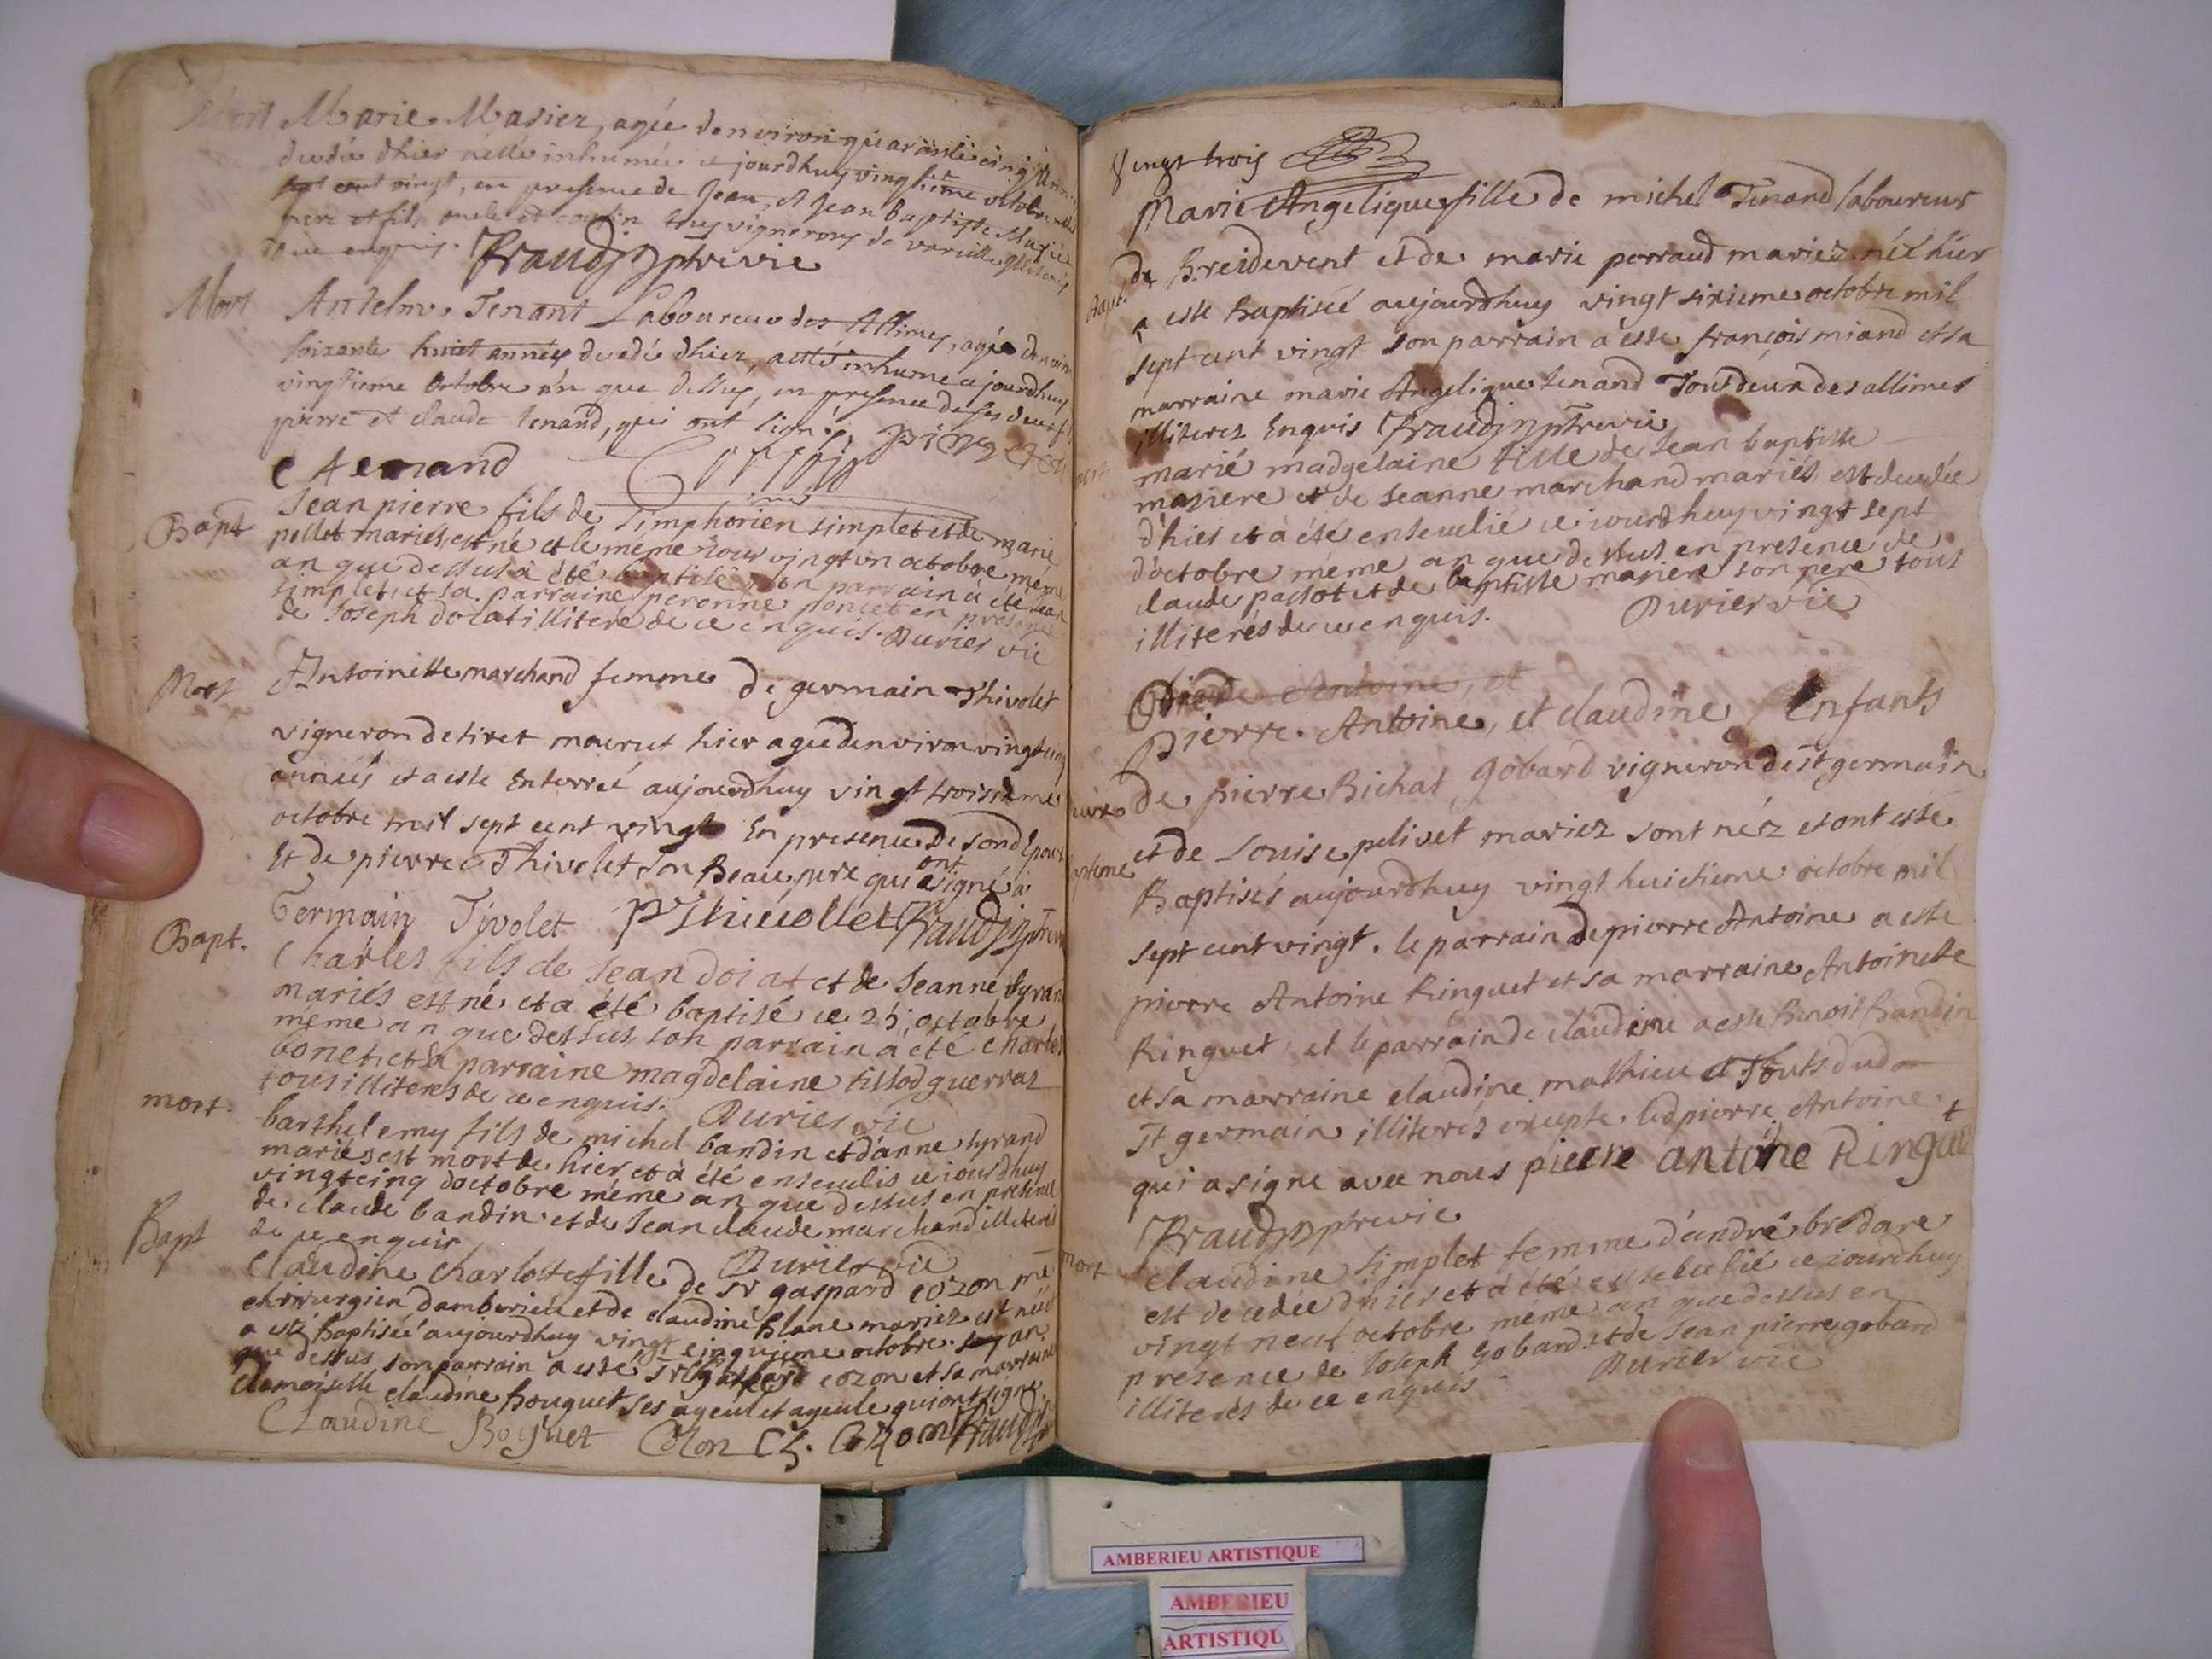 Mort Marie Masier, agée denviron quarante cinq ann
decedée dhier a esté inhumée ce jourdhuy vingtieme octobre
sept cent vingt, en presence de Jean, et Jean Baptiste
pere et fils, oncle et cousin tous vignerons de vareille
de ce enquis. Fraudin ptre vic
Mort Antelme Tenant Laboureur des Allimes, agée denviron
soixante huict années decedé dhier, a esté inhumé ce jourdhuy
vingtieme octobre an que dessus, en presence de ses deux
pierre et claude tenand, qui ont signé,
Bapt Jean pierre fils de simphorien simplet et de marie
pellet mariés est né et le méme iour vingt un octobre méme
an que dessus à été baptisé son parrain à été Jean
simplet, et sa parraine peronne poncet en presence
de Joseph doiat illiteré de ce enquis. Durier vic
Mort Antoinette marchand femme de germain Thivolet
vigneron de tiret mourut hier agée denviron vingt cinq
années et a este Enterreé aujourdhuy vingt troisieme
octobre mil sept cent vingt En presence De sond Epoux
Et de pierre Thivolet son Beau pere qui ont signé
Germain Tjvolet P Thievollet Fraudin ptre vic
Bapt. Charles fils de Jean doiat et de Jeanne tyrand
mariés est né et a été baptisé ce 25 octobre
méme an que dessus son parrain a été charles
bonet et sa parraine magdelaine tissod guerraz
tous illiterés de ce enquis. Durier vic
mort. barthelemy fils de michel bandin et d'anne tyrand
mariés est mort de hier, et à été ensevelis ce iourdhuy
vingt cinq d'octobre méme an que dessus en presence
de claude bandin et de Jean claude marchand illiterés
de ce enquis Durier vic
Bapt Claudine charlotte fille de sr gaspard cozon me
chirurgien damberieu et de claudine Blanc mariez est née et
a esté Baptisée aujourdhuy vingt cinquieme octobre an
que dessus son parrain a esté sr cozon et sa marraine
Damoiselle claudine Bouguet ses ayeul et ayeule qui ont signe
CLaudine Boguet Cozon Fraudin
Vingt trois
Marie Angelique fille de michel Tenand laboureur
de Breidevent et de marie perraud mariez néé hier
Bapt. a este Baptiséé aujourdhuy vingt sixieme octobre mil
sept cent vingt son parrain a este françois miand et sa
marraine marie Angelique tenand Tous deux des allimes
illiterez Enquis Fraudin ptre vic
mort marié madgelaine fille de Jean baptiste
masiere et de Jeanne marchand mariés est decedée
d'hier et à été ensevelié ce iourdhuy vingt sept
d'octobre méme an que dessus en presence de
claude passot et de baptiste masiere son pere tous
illiterés de ce enquis. Durier vic
Pierre Antoine, et claudine Enfants
de pierre Bichat Gobard vigneron de st germain
et de Louise pelivet mariez sont néz et ont esté
Baptisés aujourdhuy vingt huictieme octobre mil
sept cent vingt. le parrain de pierre Antoine a este
pierre Antoine Ringuet et sa marraine Antoinette
Ringuet, et le parrain de claudine a este Benoist Bandin
et sa marraine claudine mathieu Touts dud
St germain illiterés excepte led pierre Antoine
qui a signe avec nous pierre antoine Ringuet
Fraudin ptre vic
mort claudine simplet femme d'andré bredare
est decedée d'hier et à été ensevelié ce iourdhuy
vingt neuf octobre méme an que dessus en
presence de Joseph gobard et de Jean pierre gobard
illiterés de ce enquis. Durier vic
AMBERIEU ARTISTIQUE
AMBERIEU
ARTISTIQU